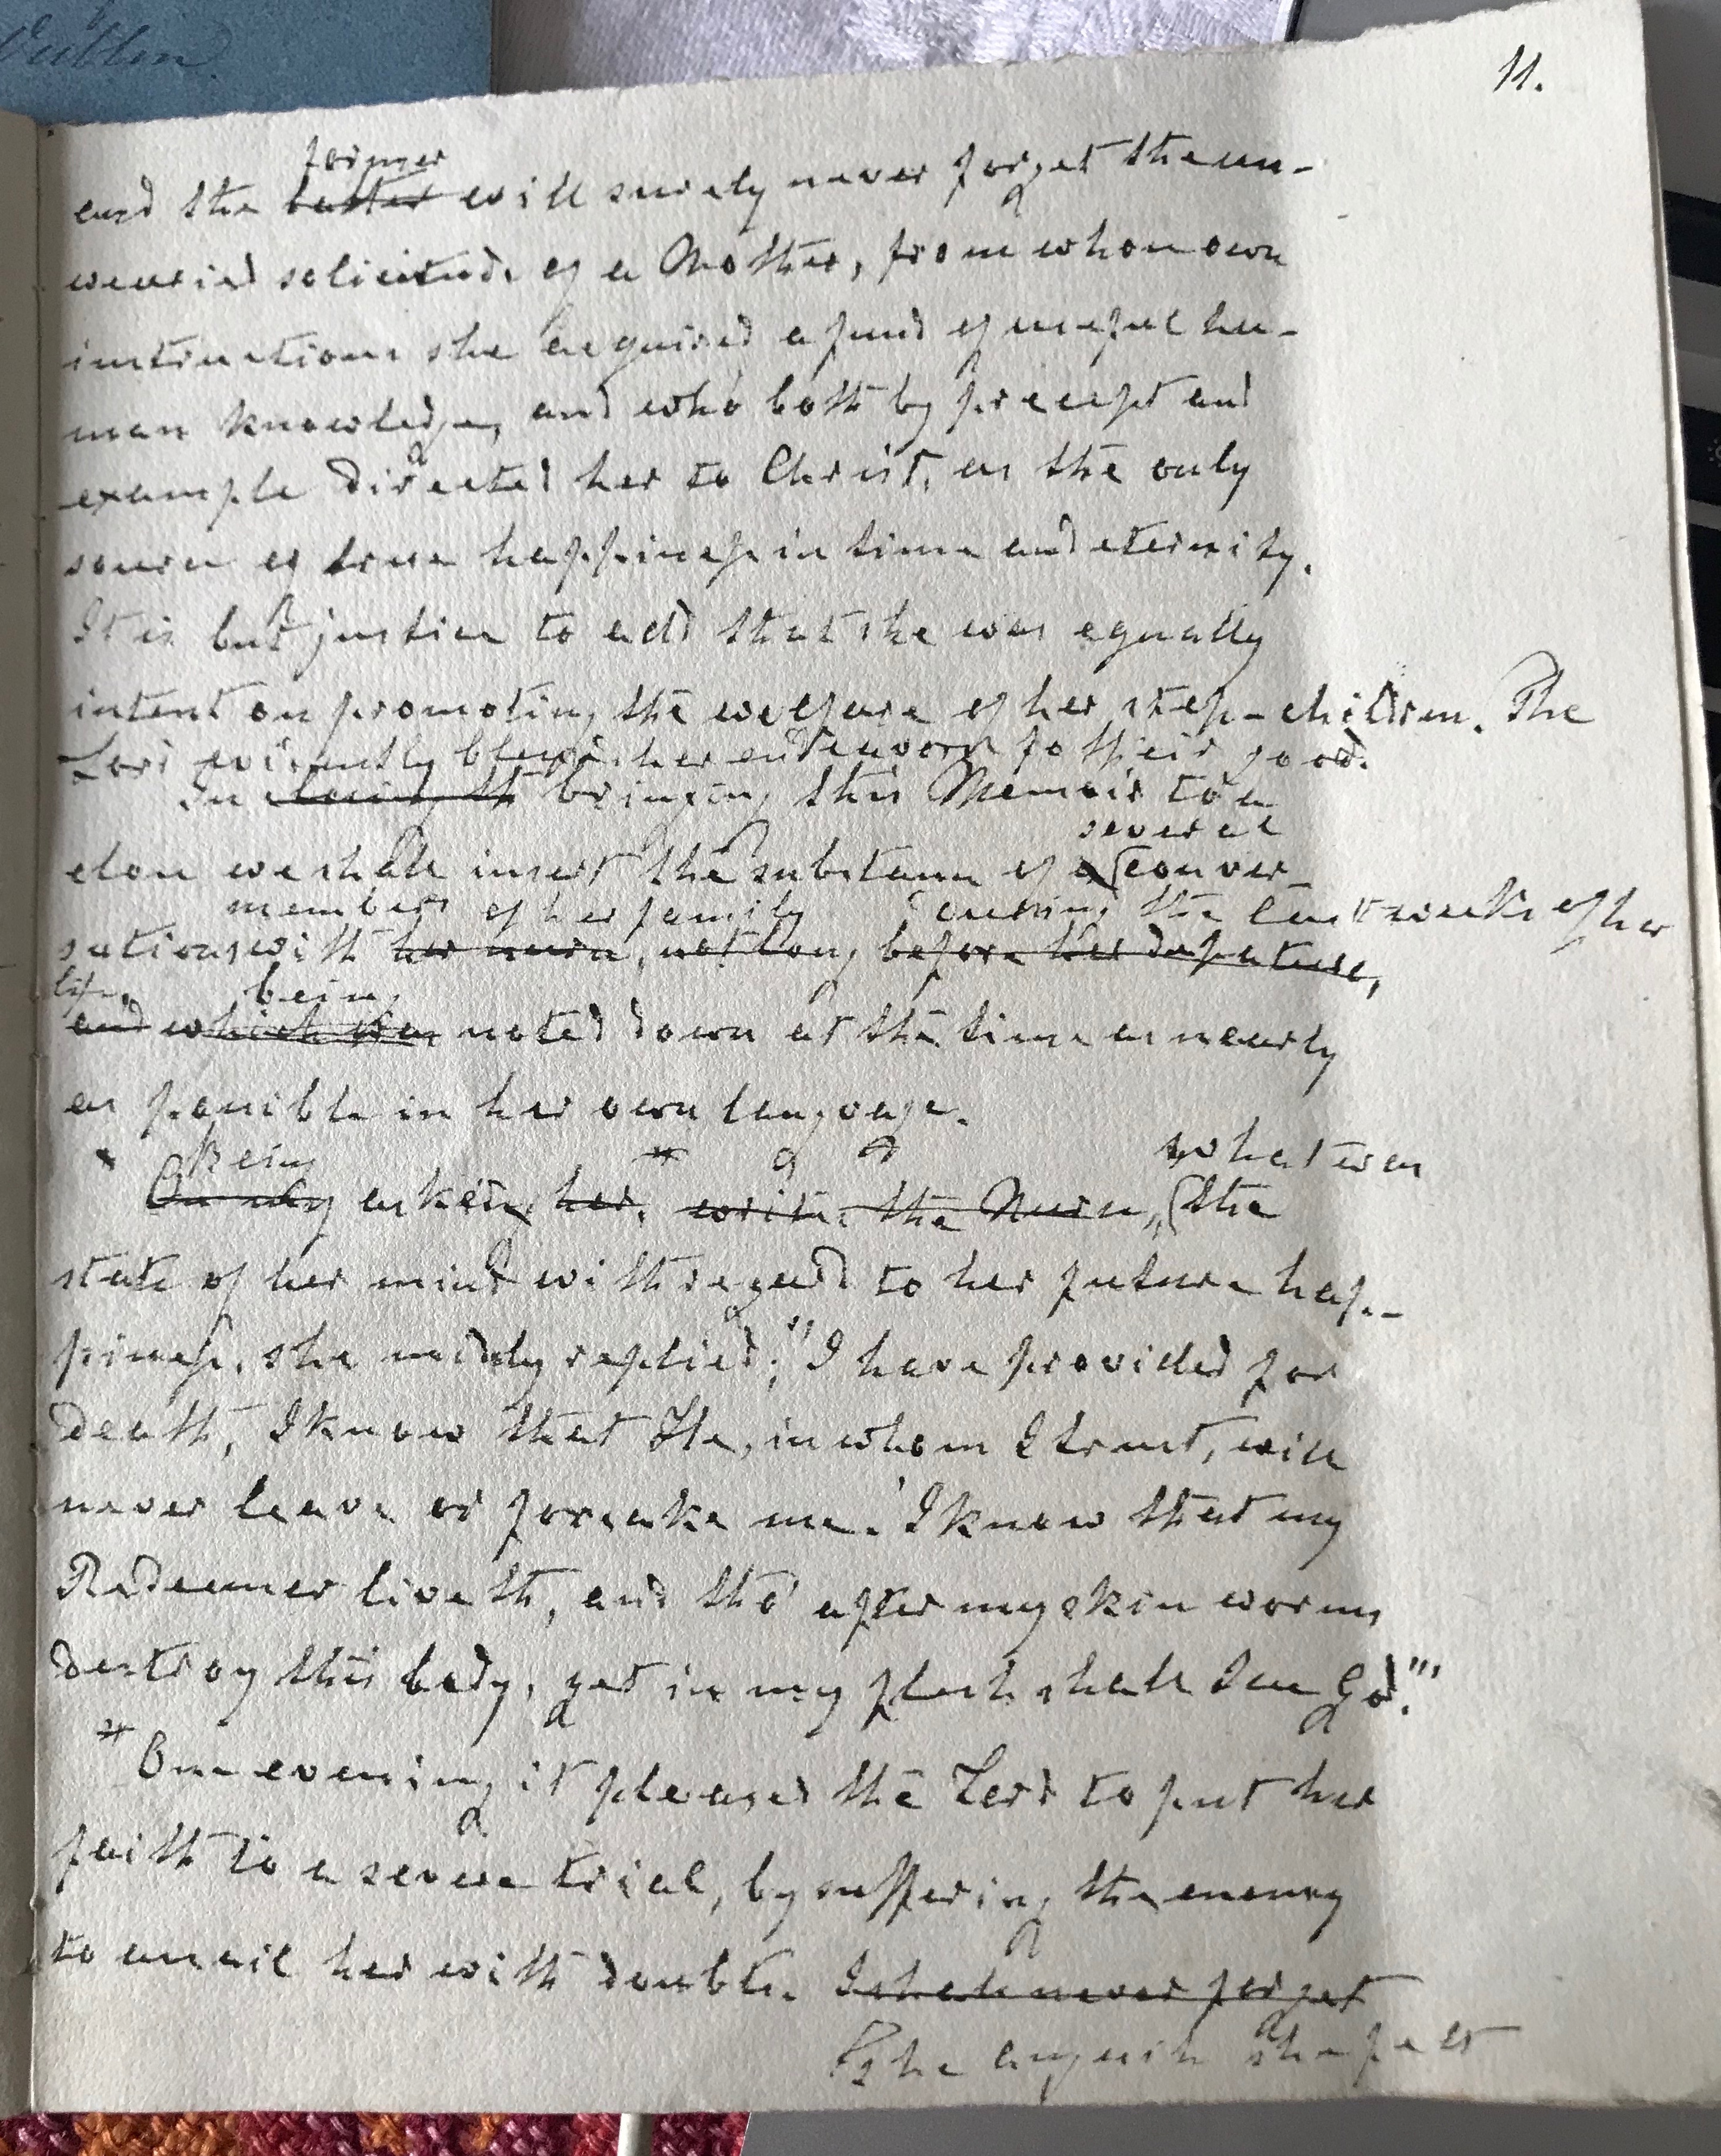 Dublin.
11.
former
and the latter will surely never forget the un-
wearied solicitude of a Mother, from whom own
instructions she acquired a fund of useful hu-
man knowledge, and who both by precept and
example directed her to Christ, as the only
source of true happiness in time and eternity.
It is but justice to add that she was equally
intent on promoting the welfare of her step-children. The
Lord evidently blessed her endeavors fo their good.
In closing th bringing this Memoir to a
several
close we shall insert the substance of a conver-
members of her family during the last weeks of her
sations with her nurse, not long before her departure,
life, being
and which was noted down at the time as nearly
as possible in her own language.
Being * what was
On my asking her, writes the Nurse, the
state of her mind with regard to her future hap-
piness, she readily replied; "I have provided for
death, I know that He, in whom I trust, will
never leave or forsake me. 'I know that my
Redeemer liveth, and tho' after my skin worms
destroy this body, yet in my flesh shall I see God.'"
* One evening it pleased the Lord to put her
faith to a severe trial, by suffering the enemy
to assail her with doubts. I shall never forget
The anguish she felt